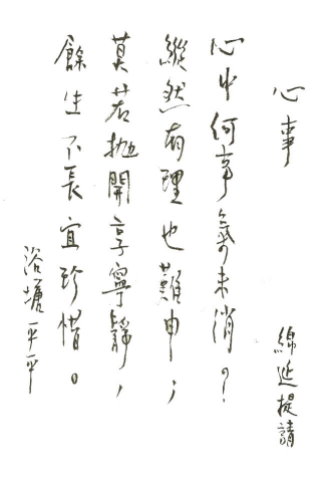 心事
綿延提請
心中何事氣未消？
縱然有理也難申；
莫若拋開享寧靜，
餘生不長宜珍惜。
浴塘平平